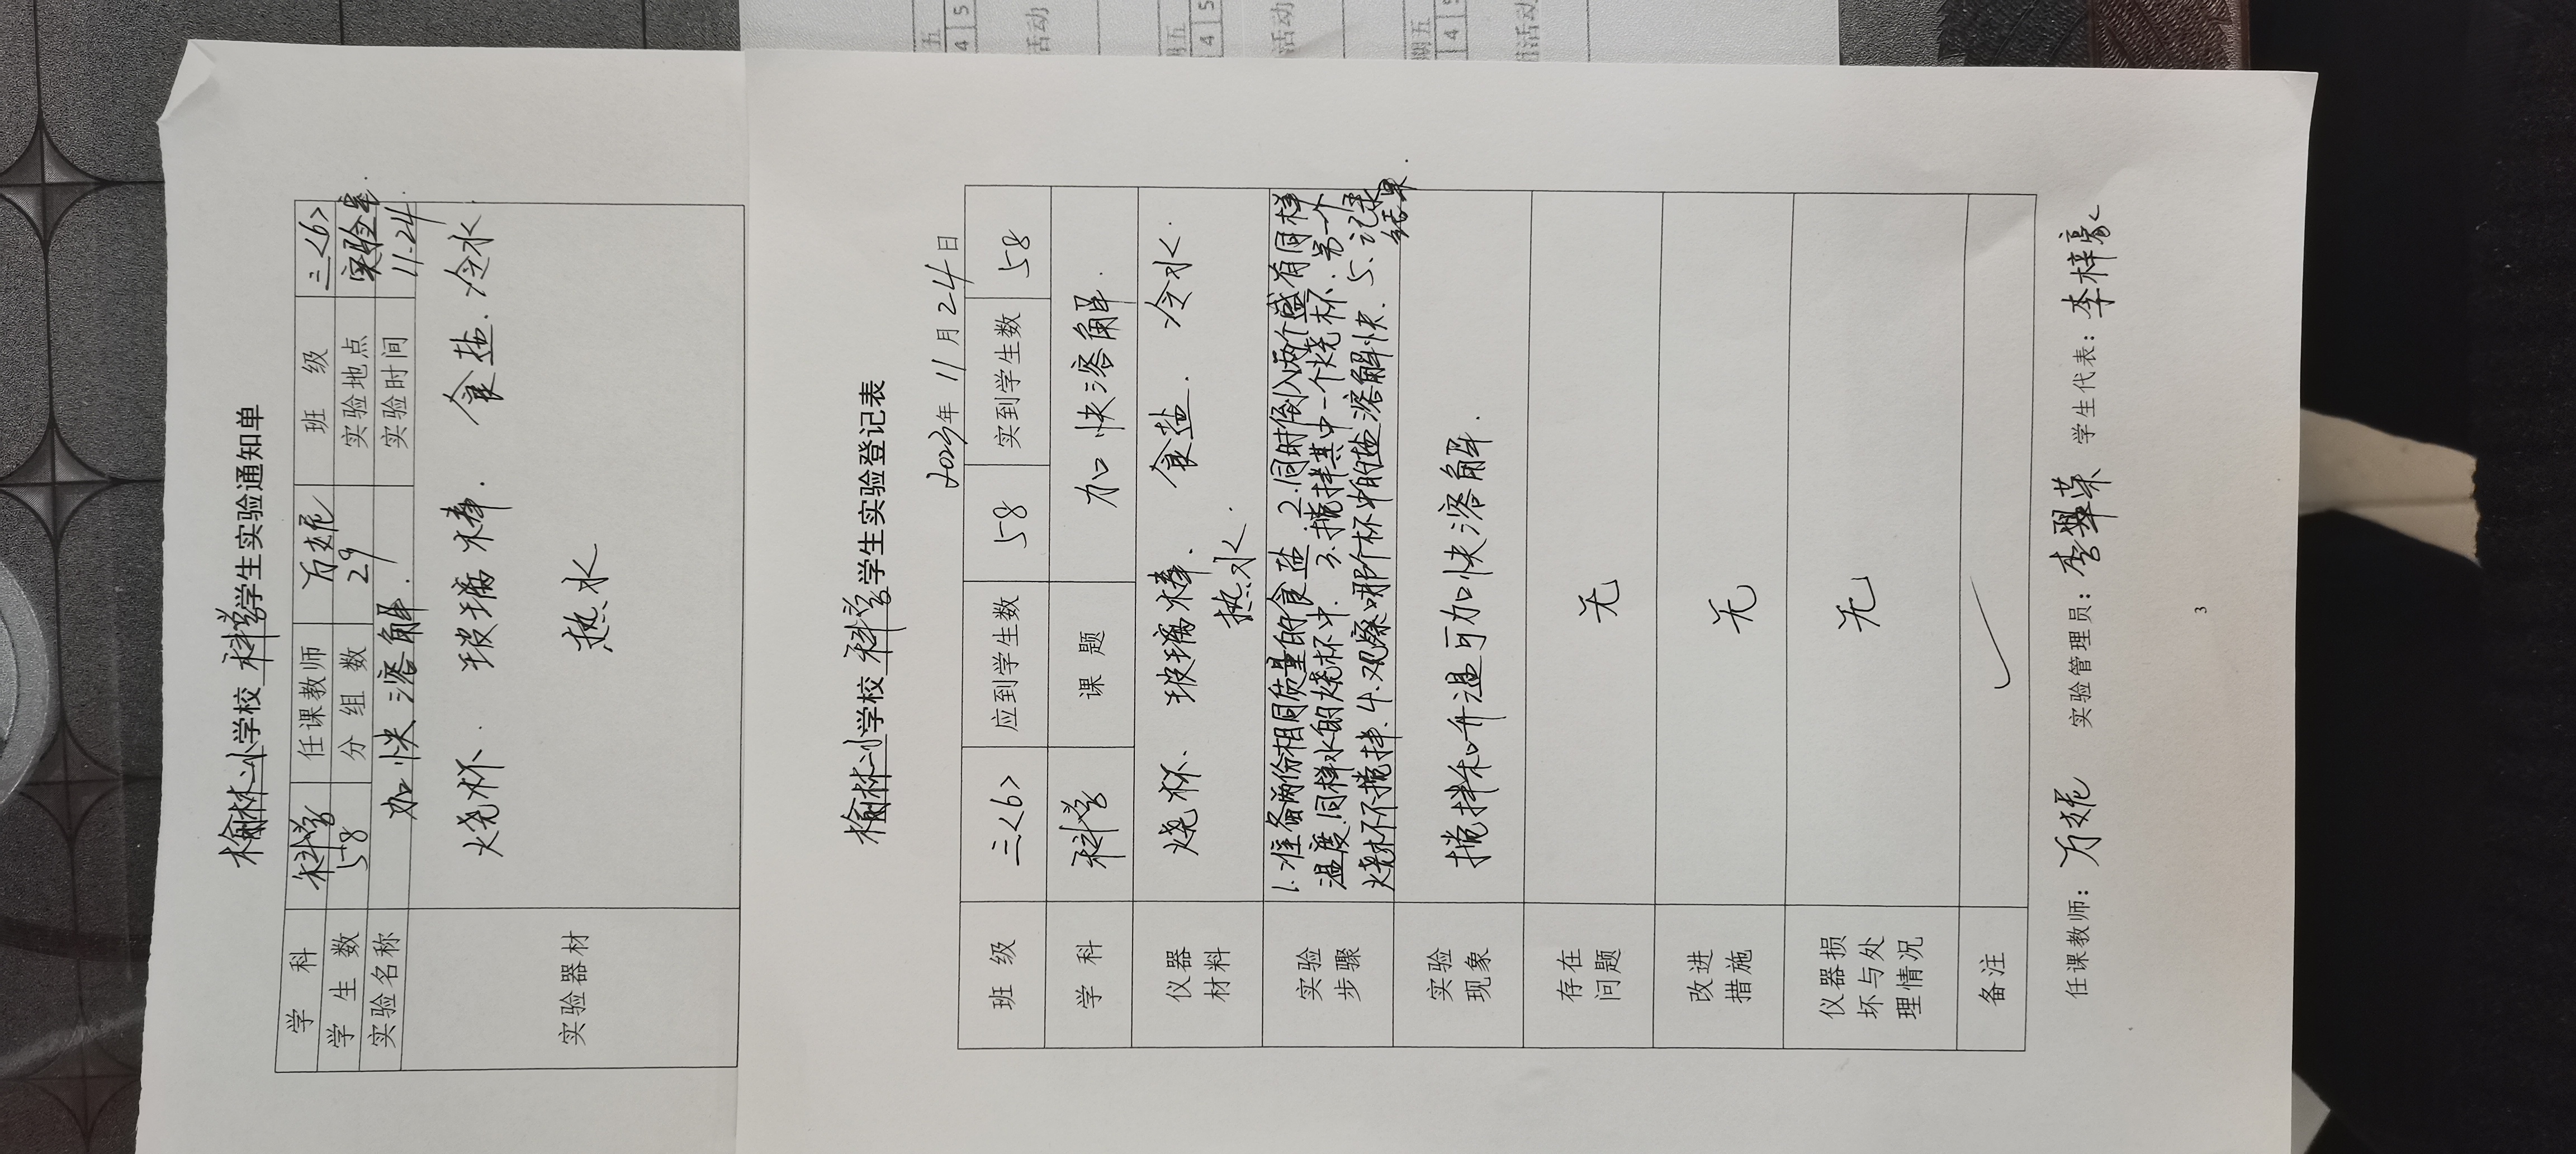 榆林小学校 科学 学生实验通知单
学 科 科学 任课教师 万妮 班 级 三<6>
学 生 数 58 分 组 数 29 实验地点 实验室.
实验名称 加快溶解. 实验时间 11.24.
实验器材 烧杯. 玻璃棒. 食盐. 冷水.
热水
榆林小学校 科学 学生实验登记表
2023年 11月 24日
班 级 三<6> 应到学生数 58 实到学生数 58
学 科 科学 课 题 加快溶解.
仪器 烧杯. 玻璃棒. 食盐. 冷水.
材料 热水.
实验 1.准备两份相同质量的食盐. 2.同时倒入两个盛有同样
步骤 温度.同样水的烧杯中. 3.搅拌其中一个烧杯.另一个
烧杯不搅拌.4.观察哪个杯中的盐溶解快. 5.记录
结果.
实验
现象 搅拌和升温可加快溶解.
存在
问题 无
改进
措施 无
仪器损
坏与处
理情况 无
备注 ✓
任课教师: 万妮 实验管理员: 李翠荣 学生代表: 李梓豪
3
五
4 5
活动
期五
4 5
活动
期五
4 5
活动